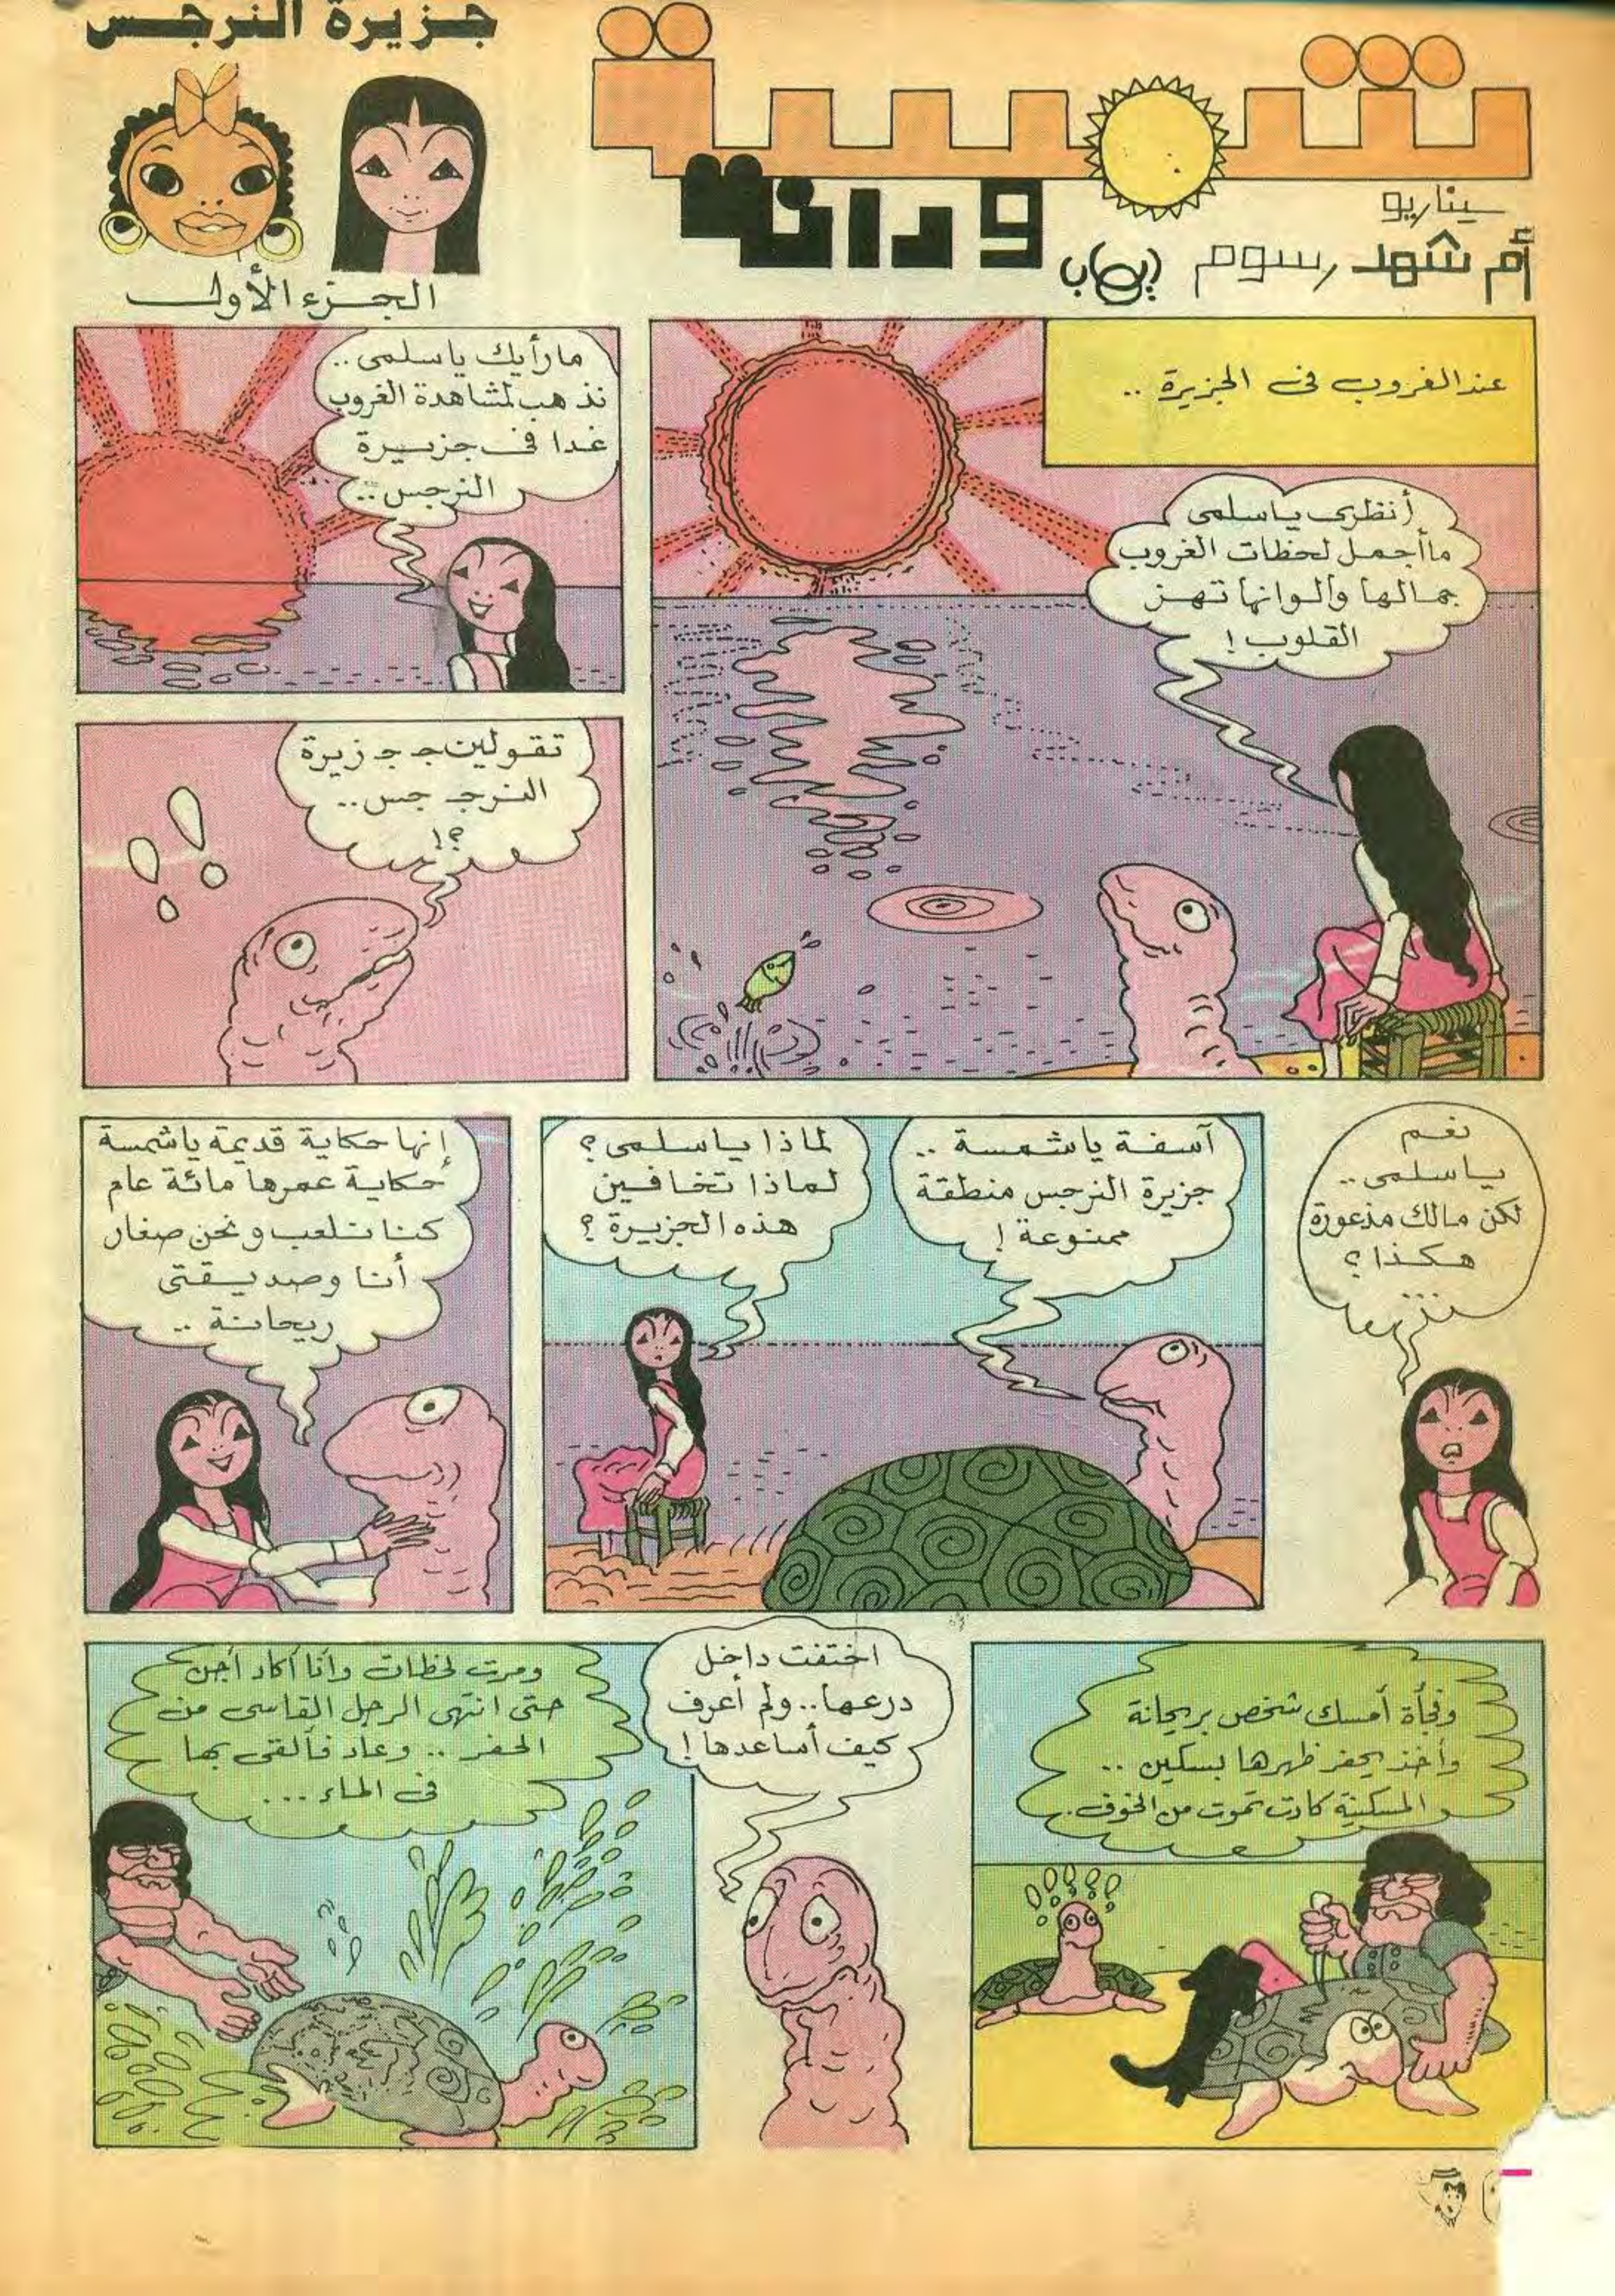 جزيرة النرجس
شمسة
ودانة
سيناريو
أم شهد رسوم إيهاب
الجزء الأول
عند الغروب فى الجزيرة ..
أنظرى يا سلمى
ما أجمل لحظات الغروب
جمالها وألوانها تهز
القلوب !
ما رأيك يا سلمى ..
نذهب لمشاهدة الغروب
غدا فى جزيرة
النرجس ..
تقولين جـ جـ زيرة
النرجـ جس ..
؟!
نعم
يا سلمى ..
لكن مالك مذعورة
هكذا ؟
...
آسفة يا شمسة ..
جزيرة النرجس منطقة
ممنوعة !
لماذا يا سلمى ؟
لماذا تخافين
هذه الجزيرة ؟
إنها حكاية قديمة يا شمسة
حكاية عمرها مائة عام
كنا نلعب ونحن صغار
أنا وصديقتى
ريحانة ..
وفجأة أمسك شخص بريحانة
وأخذ يحفر ظهرها بسكين ..
و المسكينة كادت تموت من الخوف .
اختفت داخل
درعها .. ولم أعرف
كيف أساعدها !
ومرت لحظات وأنا أكاد أجن
حتى انتهى الرجل القاسى من
الحفر .. وعاد فألقى بها
فى الماء ...